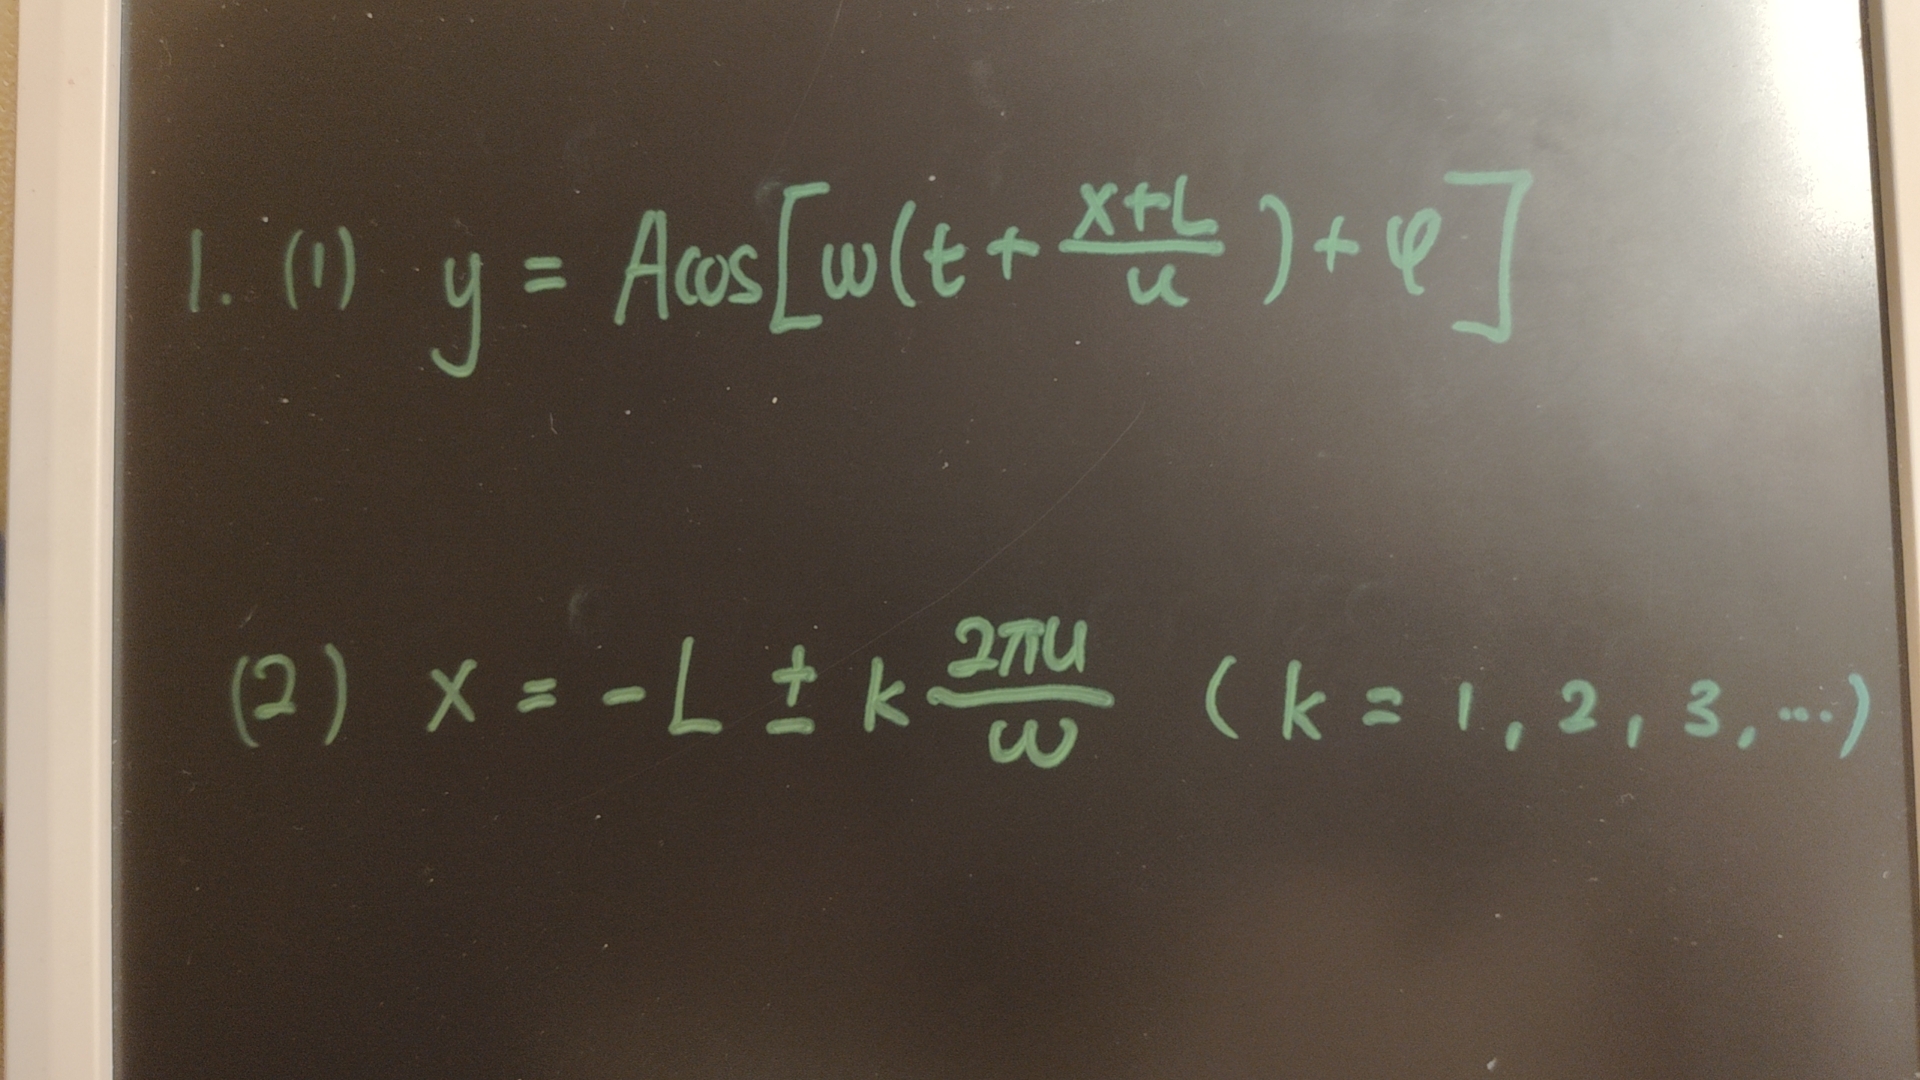 1. (1) y = Acos[ω(t + \frac{x+L}{u}) + φ]
(2) x = -L ± k \frac{2πu}{ω} (k = 1, 2, 3, ...)